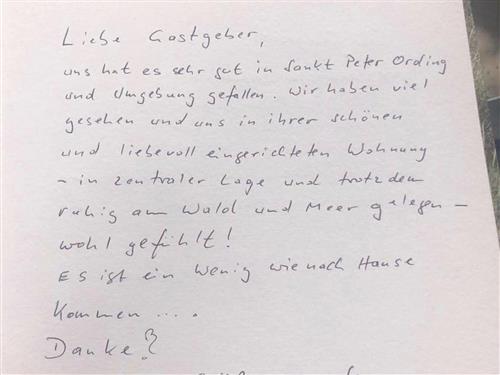 Liebe Gastgeber,
uns hat es sehr gut in Sankt Peter Ording
und Umgebung gefallen. Wir haben viel
gesehen und uns in ihrer schönen
und liebevoll eingerichteten Wohnung
– in zentraler Lage und trotzdem
ruhig am Wald und Meer gelegen –
wohl gefühlt!
Es ist ein wenig wie nach Hause
kommen ....
Danke!